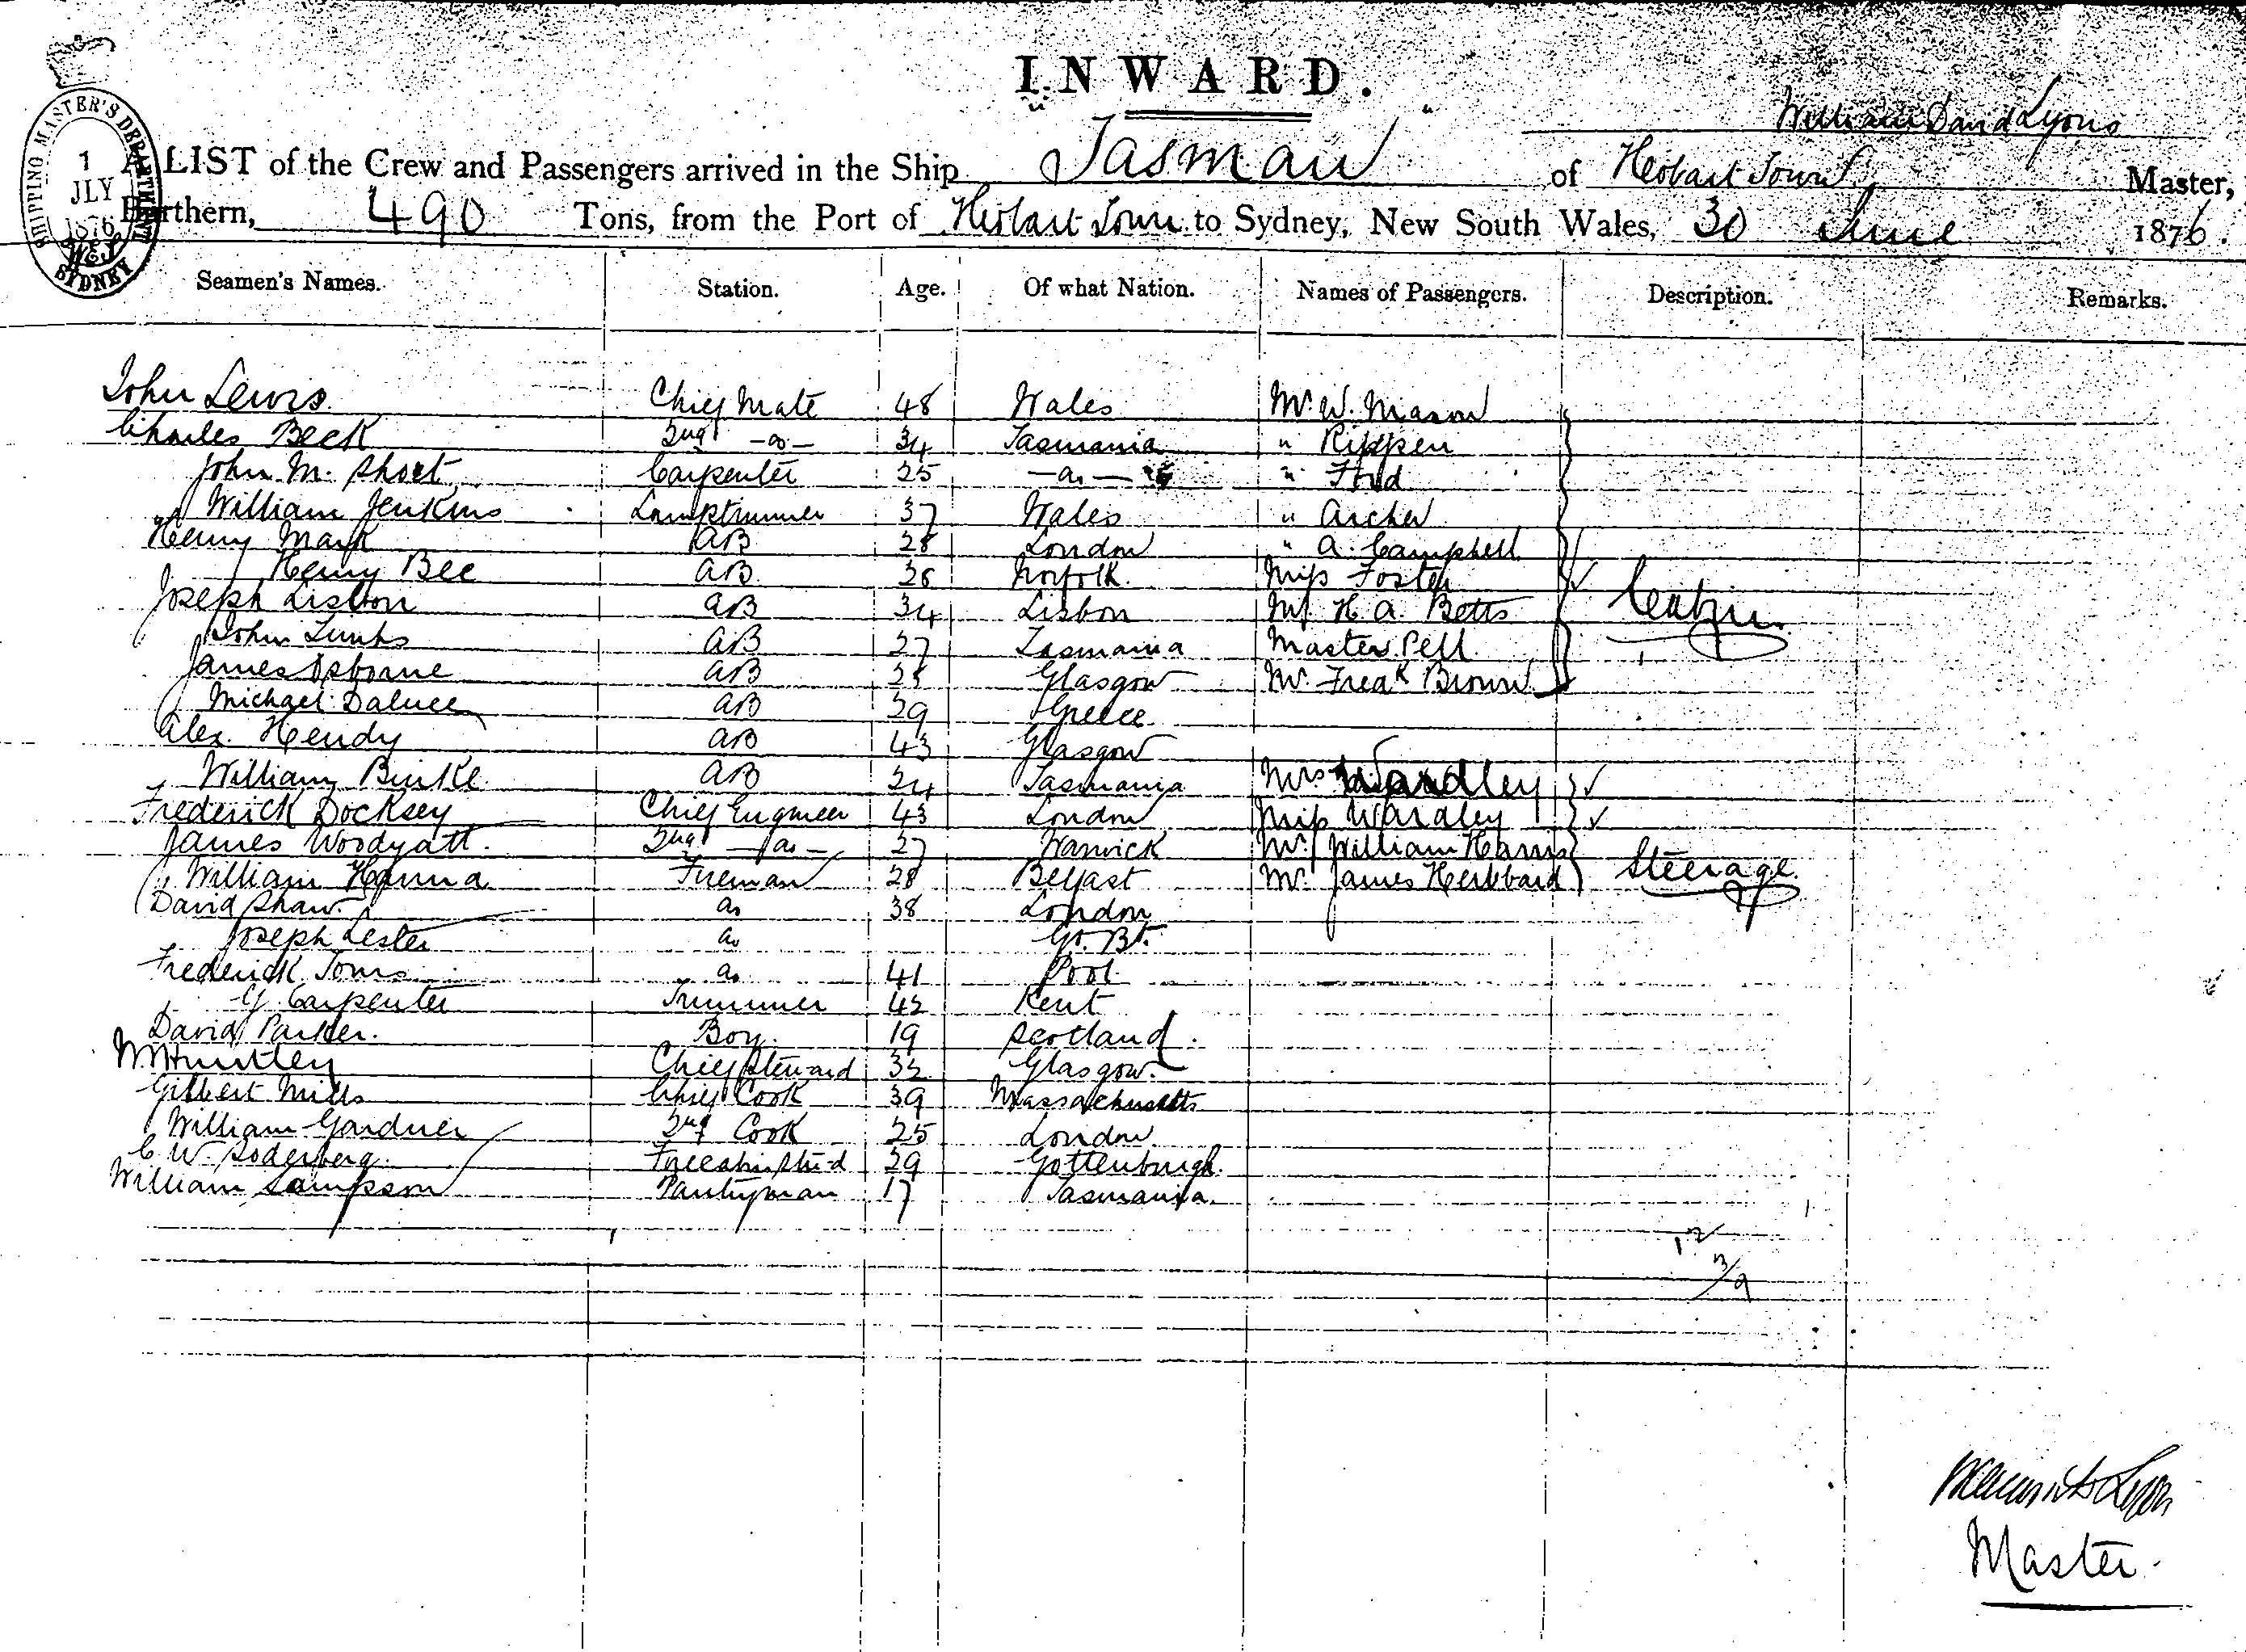 INWARD.
SHIPPING MASTER'S DEPARTMENT
1
JLY
1876
SYDNEY
William David Lyons
A LIST of the Crew and Passengers arrived in the Ship "Tasman" of Hobart Town Master,
Burthern, 490 Tons, from the Port of Hobart Town to Sydney, New South Wales, 30 June 1876.
Seamen's Names. Station. Age. Of what Nation. Names of Passengers. Description. Remarks.
John Lewis Chief Mate 48 Wales Mr. W. Mason
Charles Beck 2nd -do- 34 Tasmania " Rippen
John M. Short Carpenter 25 -do- " Ford
William Jenkins Lamptrimmer 37 Wales " Archer
Henry Mark AB 28 London " A. Campbell
Henry Bee AB 26 Norfolk. Miss Foster
Joseph Lisbon AB 34 Lisbon H. A. Betts Cabin
John Lunts AB 27 Tasmania Master Pell
James Osborne AB 25 Glasgow Mr. Fredk Brown
Michael Daluce AB 29 Greece
Alex. Hendy AB 43 Glasgow
William Burke AB 24 Tasmania Mrs Wardley
Frederick Docksey Chief Engineer 43 London Miss Wardley
James Woodyatt 2nd -do- 27 Warwick Mr. William Harris
William Hanna Fireman 28 Belfast Mr. James Herbbard Steerage.
David Shaw do 38 London
Joseph Lester do Gt. Bt.
Frederick Toms do 41 Pool
G. Carpenter Trimmer 42 Kent
David Parker. Boy. 19 Scotland.
Huntley Chief Steward 32 Glasgow.
Gilbert Mills Chief Cook 39 Massachusetts
William Gardner 2nd Cook 25 London
C. W. Soderberg. Forecabin Stwd 29 Gottenburgh.
William Sampson Pantryman 17 Tasmania.
12
Lyon
Master.